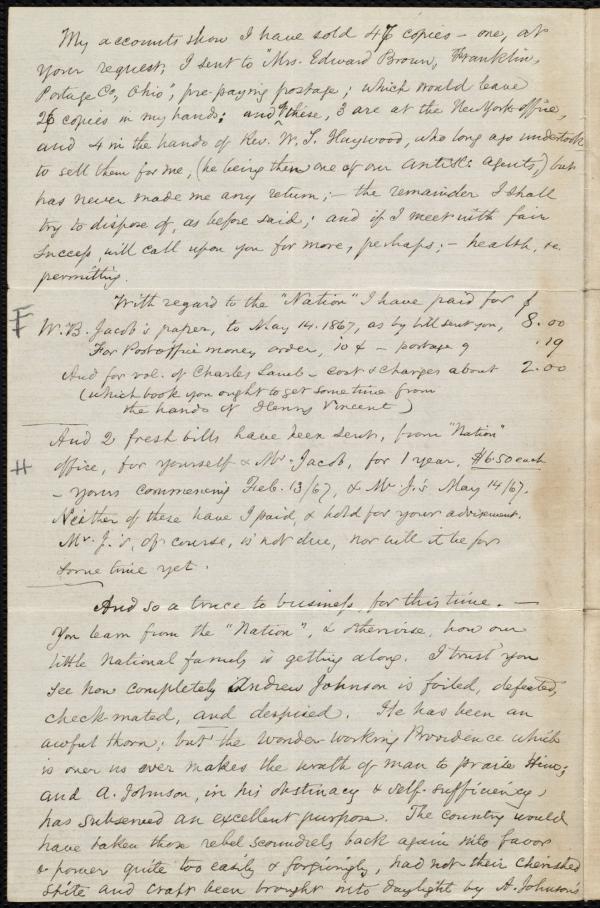 My accounts show I have sold 47 copies – one, at
your request, I sent to "Mrs. Edward Brown, Franklin,
Portage Co., Ohio", pre-paying postage; which would leave
26 copies in my hands; and of these, 3 are at the New York office,
and 4 in the hands of Rev. W. T. Haywood, who long ago undertook
to sell them for me, (he being then one of our Anti Sl: agents,) but
has never made me any return; – the remainder I shall
try to dispose of, as before said; and if I meet with fair
success, will call upon you for more, perhaps; – health, &c.
permitting.
With regard to the "Nation" I have paid for $
F W. B. Jacob's paper, to May 14. 1867, as by bill sent you, 8.00
For Post office money order, 10 ¢ – postage 9 .19
And for vol. of Charles Lamb – cost & charges about 2.00
(which book you ought to get some time from
the hands of Henry Vincent)
And 2 fresh bills have been sent, from "Nation"
H office, for yourself & Mr. Jacob, for 1 year, $6.50 each
– yours commencing Feb. 13/67, & Mr. J.'s May 14/67.
Neither of these have I paid, & hold for your advisement.
Mr. J.'s, of course, is not due, nor will it be for
some time yet.
And so a truce to business, for this time. –
You learn from the "Nation", & otherwise, how our
little National family is getting along. I trust you
see how completely Andrew Johnson is foiled, defeated,
check-mated, and despised. He has been an
awful thorn; but the wonder-working Providence which
is over us ever makes the wrath of man to praise Him;
and A. Johnson, in his obstinacy & self-sufficiency,
has subserved an excellent purpose. The country would
have taken those rebel scoundrels back again into favor
& power quite too easily & forgivingly, had not their cherished
spite and craft been brought into daylight by A. Johnson's